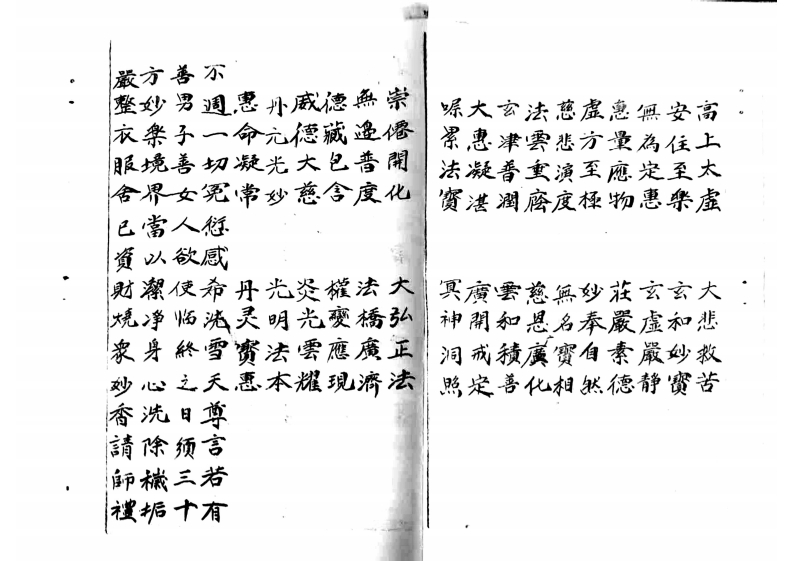 高上太虛 大悲救苦
安住至樂 玄和妙寶
無為定惠 玄虛嚴静
惠量應物 莊嚴素德
虛方至極 妙奉自然
慈悲演度 無名寶相
法雲重蔭 慈恩廣化
玄津普潤 雲和積善
大惠凝湛 廣開戒定
喍累法寶 冥神洞照
崇僊開化 大弘正法
無邊普度 法橋廣濟
德藏包含 權變應現
威德大慈 炎光雲耀
丹元光妙 光明法本
惠命凝常 丹灵寶惠
不週一切冤愆感希洗雪天尊言若有
善男子善女人欲使临終之日须三十
方妙樂境界當以潔净身心洗除穢垢
嚴整衣服舍已資財燒衆妙香請師禮